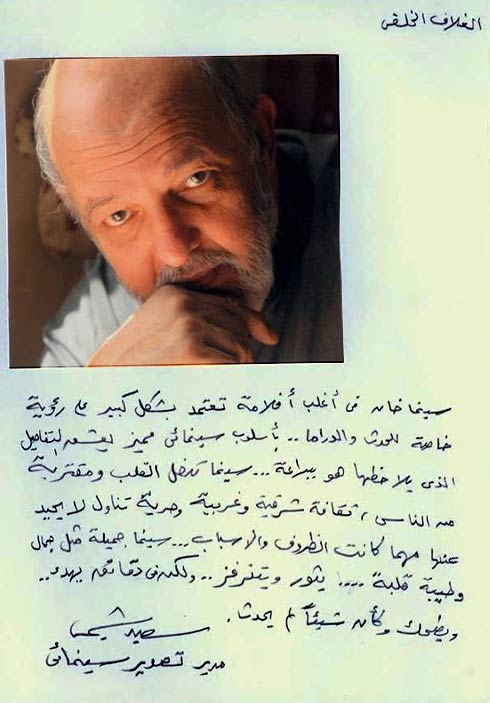 الغلاف الخلفى
سينما خان فى أغلب أفلامة تعتمد بشكل كبير على رؤية
خاصة للحدث والدراما .. بأسلوب سينمائى مميز يعشق التفاصيل
الذى يلاحظها هو ببراعة ... سينما تدخل القلب ومقتربة
من الناس ، ثقافة شرقية وغربية وحرية تناول لا يحيد
عنها مهما كانت الظروف والاسباب ... سينما جميلة مثل جمال
وطيبة قلبة .... يثور ويتنرفز .. ولكنه فى دقائق يهدء ..
ويطبطب وكأن شيئاً لم يحدث .
سعيد شيمى
مدير تصوير سينمائى